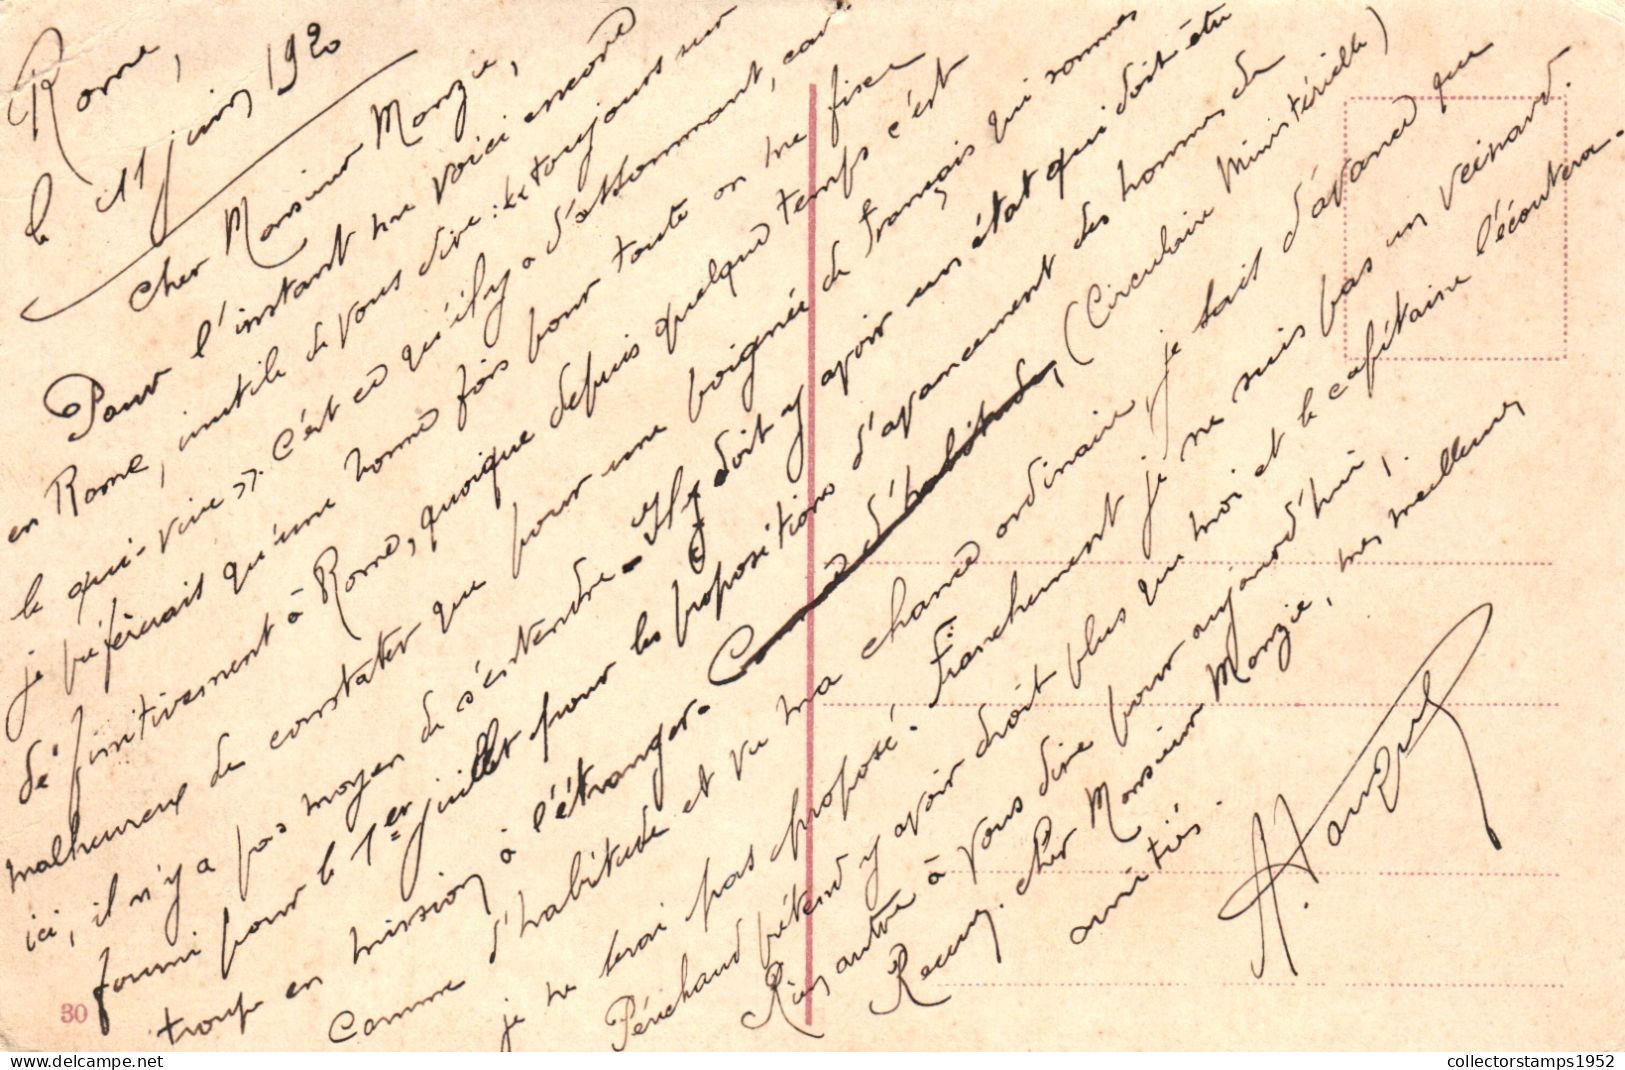 Rome,
le 11 juin 1920
Cher Monsieur Monzie,
Pour l'instant me voici encore
en Rome, inutile de vous dire : « toujours sur
le qui-vive ». C'est ce qu'il y a d'assommant, car
je préférerais qu'une bonne fois pour toute on me fixe
définitivement à Rome, quoique depuis quelque temps c'est
malheureux de constater que pour une poignée de français qui sommes
ici, il n'y a pas moyen de s'entendre - Il y doit y avoir un état qui doit être
fourni pour le 1er juillet pour les propositions d'avancement des hommes de
troupe en mission à l'étranger. Comme d'habitude, (Circulaire Ministérielle)
Comme d'habitude et vu ma chance ordinaire, je sais d'avance que
je ne serai pas proposé. Franchement je ne suis pas un veinard.
Périchaud prétend y avoir droit plus que moi et le capitaine l'écoutera.
Rien autre à vous dire pour aujourd'hui,
Recevez. cher Monsieur Monzie, mes meilleures
amitiés.
30
collectorstamps1952